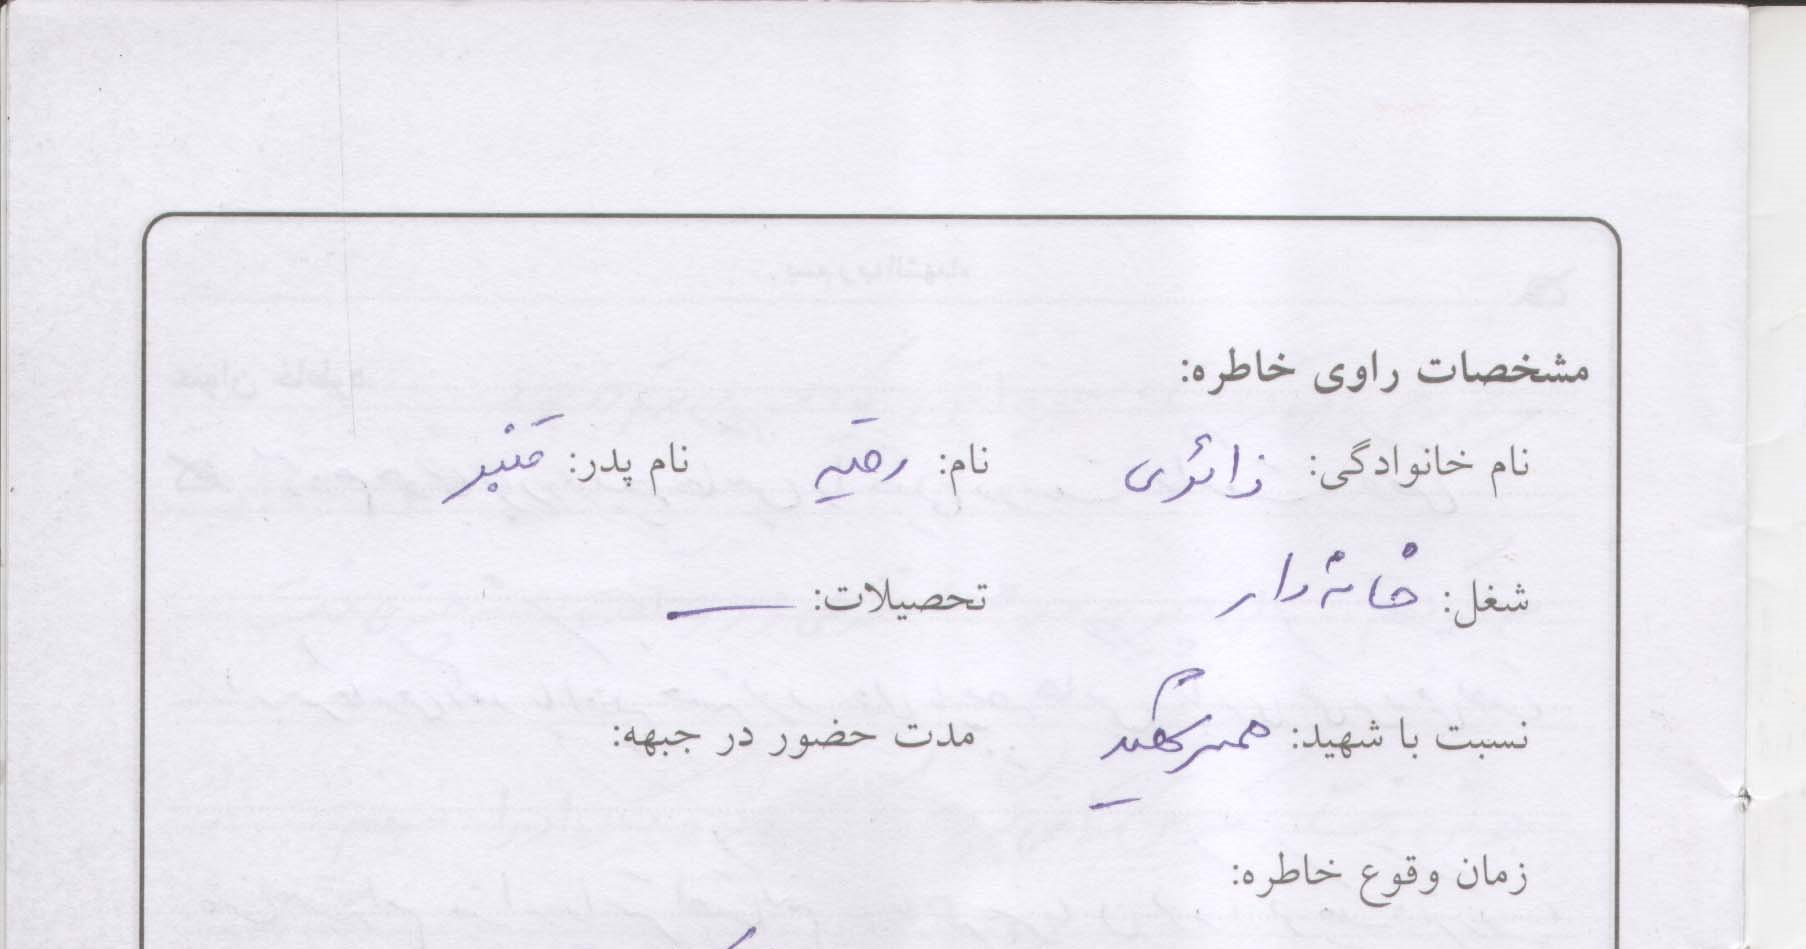 مشخصات راوی خاطره:
نام خانوادگی: زائری نام: رقیه نام پدر: قنبر
شغل: خانه دار تحصیلات: —
نسبت با شهید: همسر شهید مدت حضور در جبهه:
زمان وقوع خاطره: